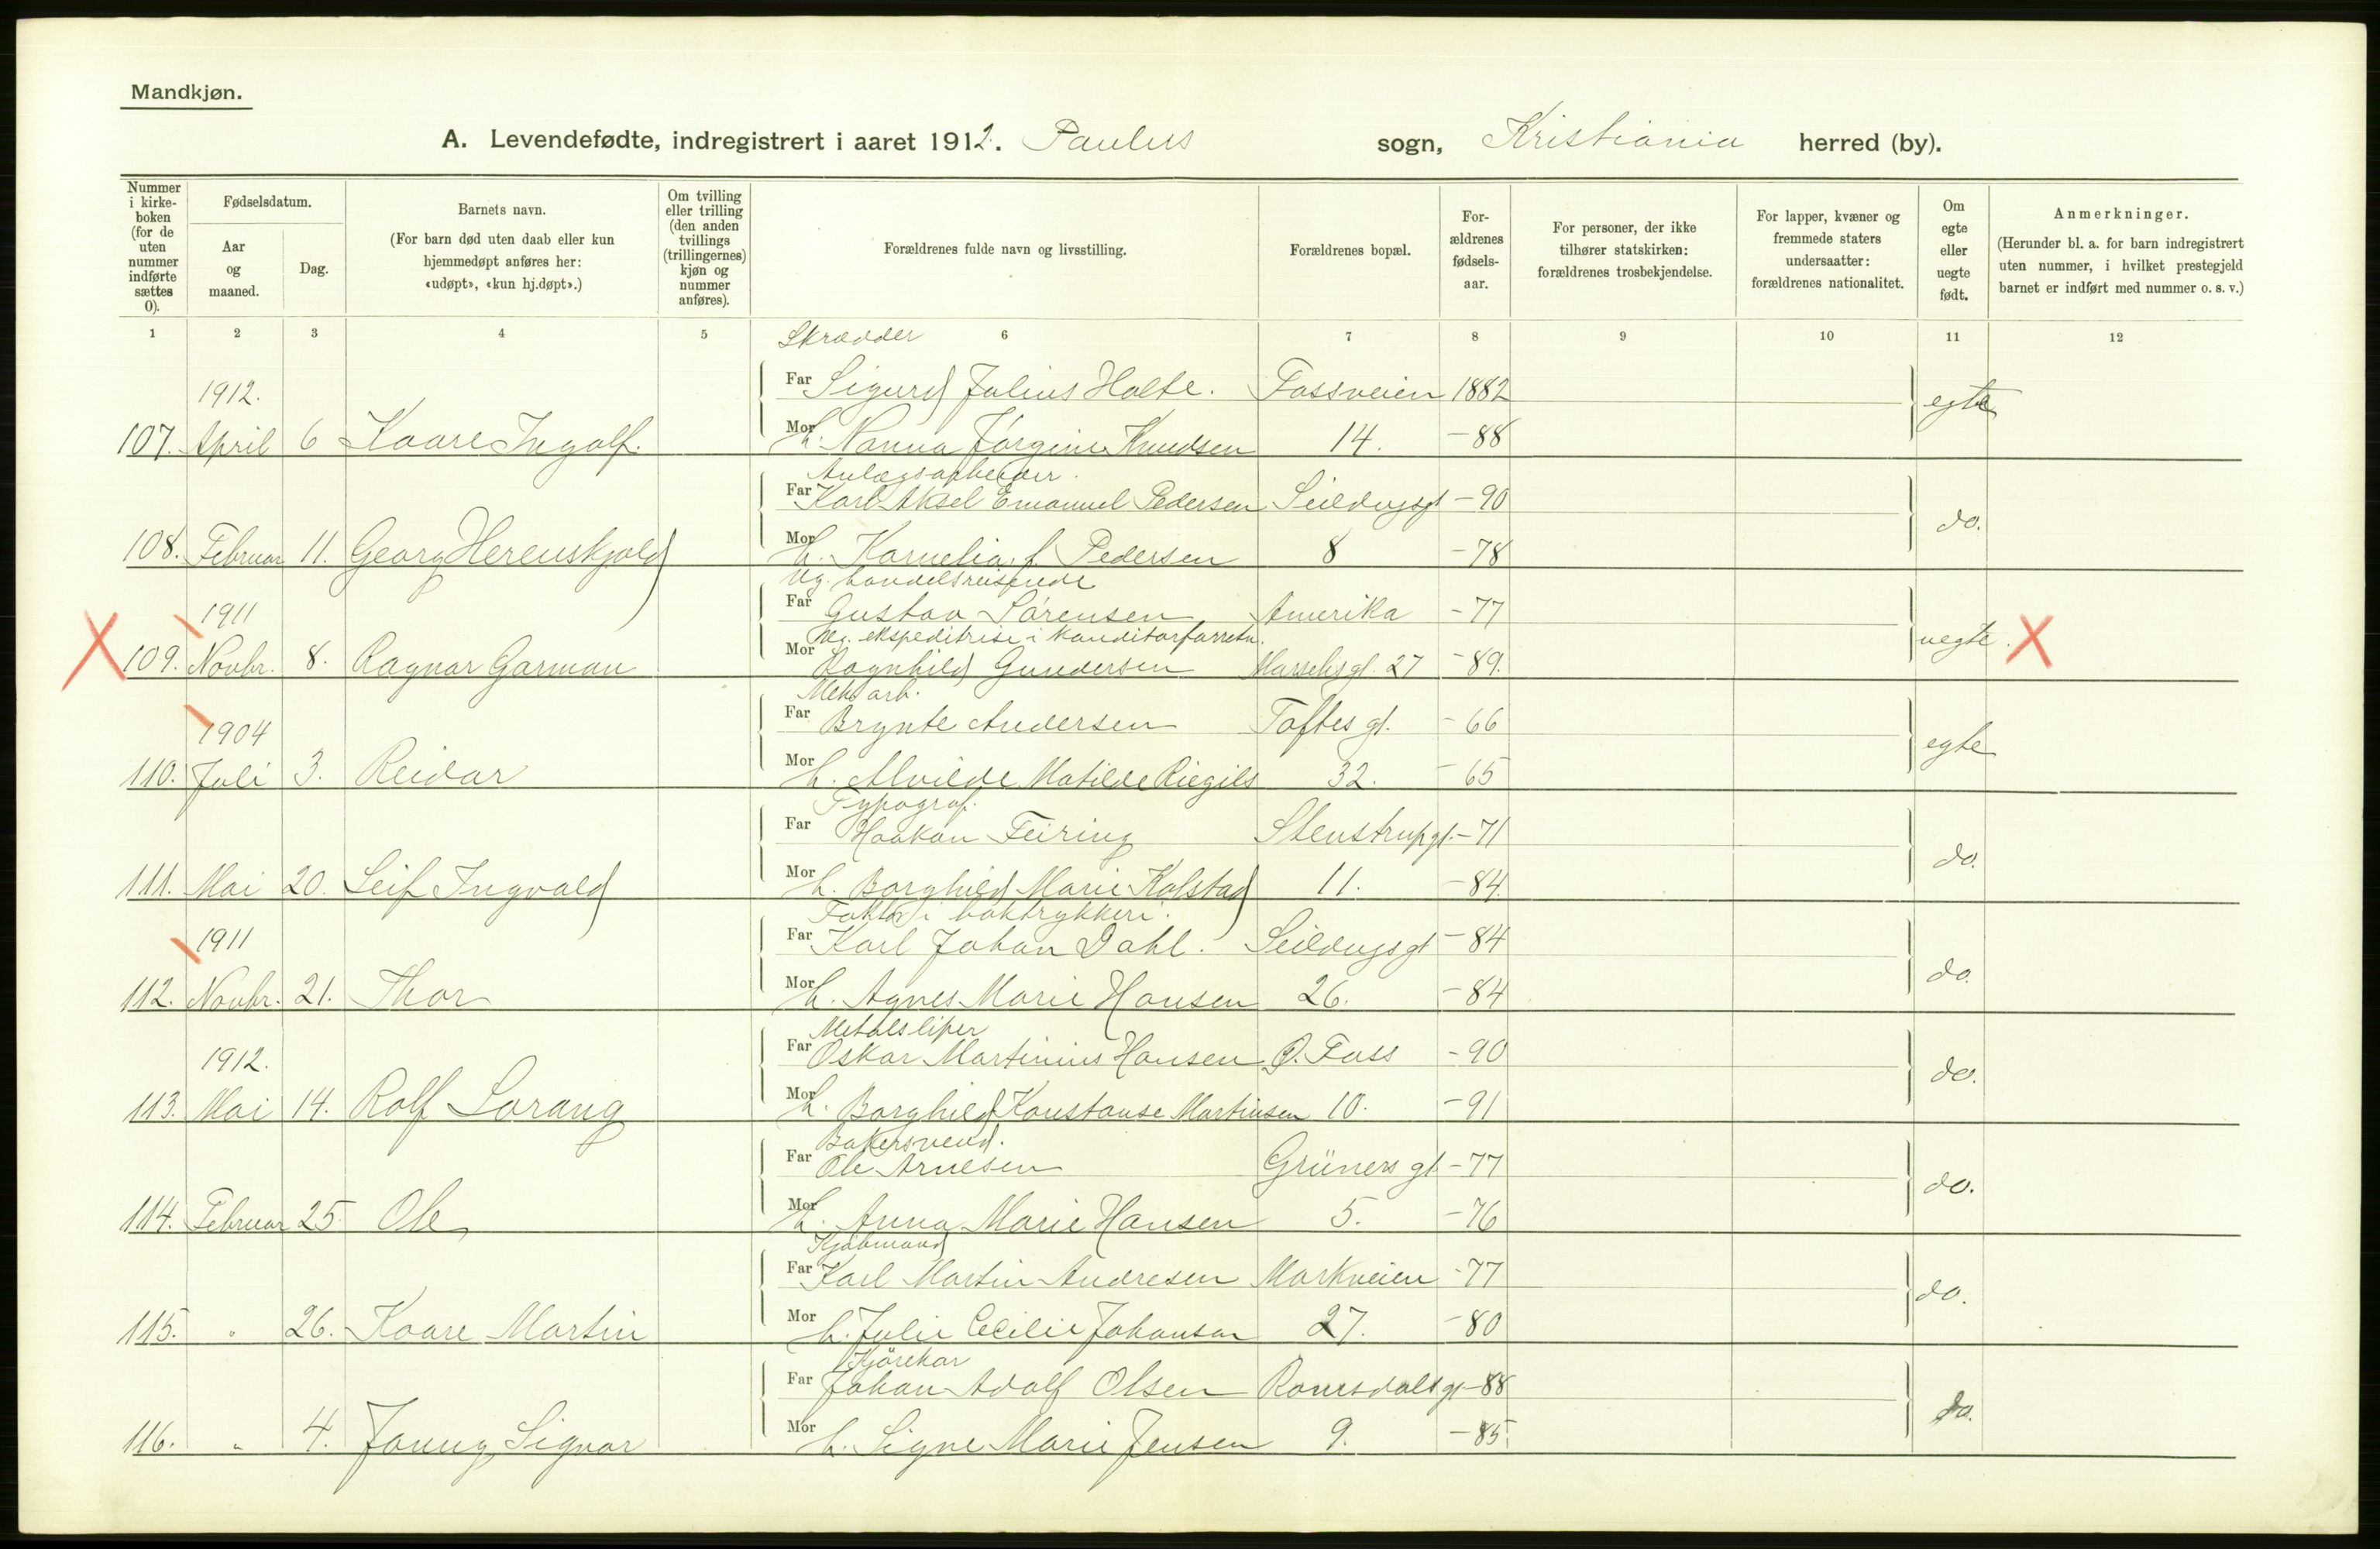 Mandkjøn.
A. Levendefødte, indregistrert i aaret 1912. Paulus sogn, Kristiania herred (by).
Nummer i kirke-boken (for de uten nummer indførte sættes 0).
Fødselsdatum.
Aar og maaned.
Dag.
Barnets navn.
(For barn død uten daab eller kun hjemmedøpt anføres her: «udøpt», «kun hj.døpt».)
Om tvilling eller trilling (den anden tvillings (trillingernes) kjøn og nummer anføres).
Forældrenes fulde navn og livsstilling.
Forældrenes bopæl.
For-ældrenes fødsels-aar.
For personer, der ikke tilhører statskirken: forældrenes trosbekjendelse.
For lapper, kvæner og fremmede staters undersaatter: forældrenes nationalitet.
Om egte eller uegte født.
Anmerkninger.
(Herunder bl. a. for barn indregistrert uten nummer, i hvilket prestegjeld barnet er indført med nummer o. s. v.)
1 2 3 4 5 6 7 8 9 10 11 12
Skrædder
1912. Far Sigurd Julius Holte. Fossveien 1882 egte
107. April 6 Kaare Ingolf. Mor h. Nanna Jørgine Knudsen 14. -88
Anlægsarbeider.
Far Karl Aksel Emanuel Pedersen Seildugsgt -90 do.
108. Februar 11. Georg Herenskjold Mor h. Kornelia f. Pedersen 8 -78
Ug. handelsreisende
1911 Far Gustav Sørensen Amerika -77 uegte.
Ug. ekspeditrise i konditorforretn.
109. Novbr. 8. Ragnar Garman Mor Ragnhild Gundersen 27 -89.
Mek. arb.
1904 Far Brynte Andersen Toftes gt. -66 egte
110. Juli 3. Reidar Mor h. Alvilde Matilde 32. -65
Typograf.
Far Haakon Feiring Stenstrupgt. -71 do.
111. Mai 20. Leif Ingvald Mor h. Borghild Marie Kolstad 11. -84.
Faktor i boktrykkeri.
1911 Far Karl Johan Dahl. Seildugsgt -84 do.
112. Novbr. 21. Thor Mor h. Agnes Marie Hansen 26. -84
Metalsliper
1912. Far Oskar Martinius Hansen Ø. Foss -90 do.
113. Mai 14. Rolf Lorang Mor h. Borghild Konstanse Martinsen 10. -91
Bakersvend.
Far Ole Arnesen Grüners gt -77 do.
114. Februar 25 Ole Mor h. Anna Marie Hansen 5. -76
Kjøbmand
Far Karl Martin Andresen Markveien -77 do.
115. " 26. Kaare Martin Mor h. Julie Cecilie Johansen 27. -80
Kjørekar
Far Johan Adolf Olsen Romsdalsgt -88 do.
116. " 4. Jonny Signar Mor h. Signe Marie Jensen 9. -85